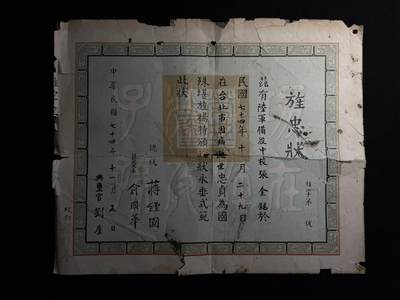 旌忠狀
茲有陸軍備役中校張金銘於
民國七十四年十月二十九日
在台北市因病逝世忠貞為國
殊堪旌揚特頒此狀永垂式範
此狀
總統 蔣經國
行政院院長 俞國華
典璽官 劉垕
中華民國七十四年十二月五日